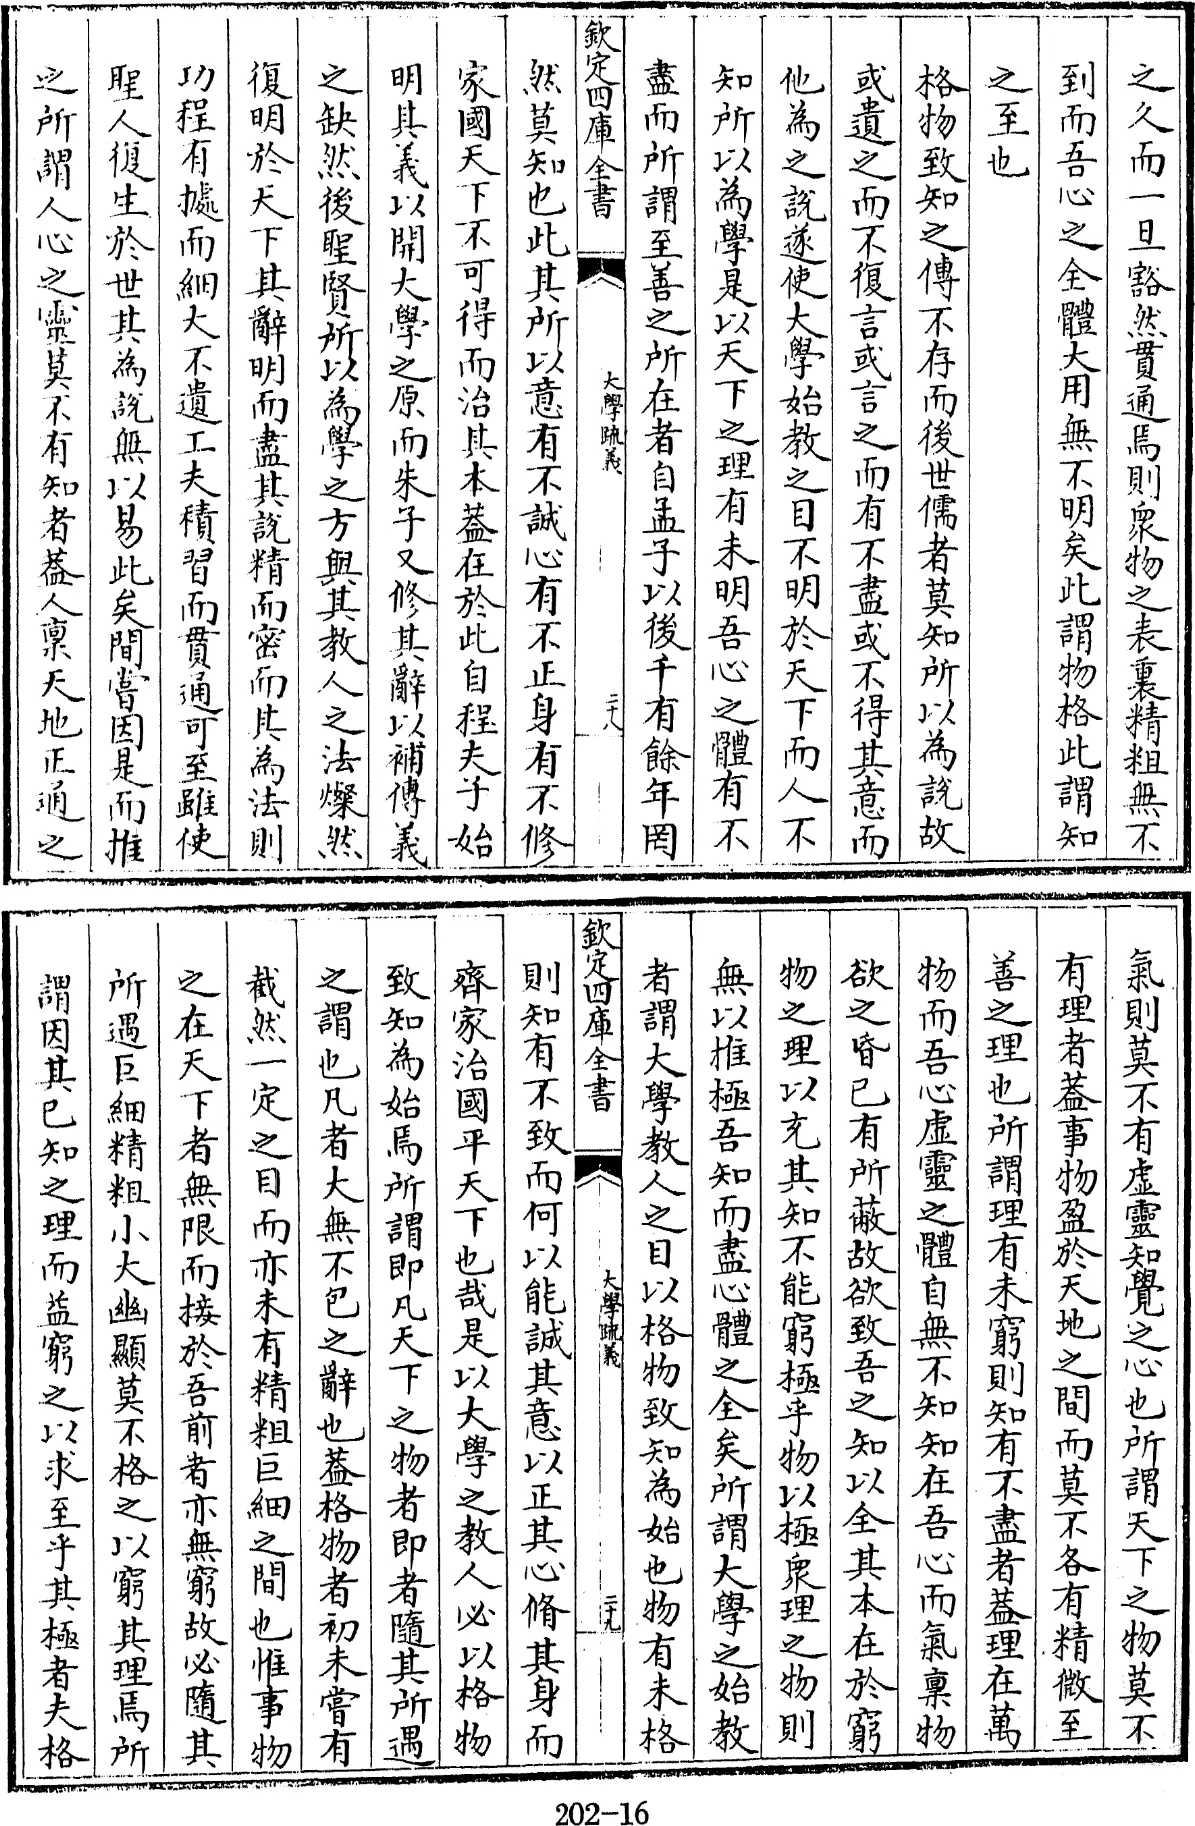 之久而一旦豁然貫通焉則衆物之表裏精粗無不
到而吾心之全體大用無不明矣此謂物格此謂知
之至也
格物致知之傳不存而後世儒者莫知所以為說故
或遺之而不復言或言之而有不盡或不得其意而
他為之說遂使大學始教之目不明於天下而人不
知所以為學是以天下之理有未明吾心之體有不
盡而所謂至善之所在者自孟子以後千有餘年罔
欽定四庫全書
大學疏義
二十八
然莫知也此其所以意有不誠心有不正身有不修
家國天下不可得而治其本蓋在於此自程夫子始
明其義以開大學之原而朱子又修其辭以補傳義
之缺然後聖賢所以為學之方與其教人之法燦然
復明於天下其辭明而盡其說精而密而其為法則
功程有據而細大不遺工夫積習而貫通可至雖使
聖人復生於世其為說無以易此矣間嘗因是而推
之所謂人心之靈莫不有知者蓋人稟天地正通之
氣則莫不有虛靈知覺之心也所謂天下之物莫不
有理者蓋事物盈於天地之間而莫不各有精微至
善之理也所謂理有未窮則知有不盡者蓋理在萬
物而吾心虛靈之體自無不知知在吾心而氣稟物
欲之昏已有所蔽故欲致吾之知以全其本在於窮
物之理以充其知不能窮極乎物以極衆理之物則
無以推極吾知而盡心體之全矣所謂大學之始教
者謂大學教人之目以格物致知為始也物有未格
欽定四庫全書
大學疏義
二十九
則知有不致而何以能誠其意以正其心脩其身而
齊家治國平天下也哉是以大學之教人必以格物
致知為始焉所謂即凡天下之物者即者隨其所遇
之謂也凡者大無不包之辭也蓋格物者初未嘗有
截然一定之目而亦未有精粗巨細之間也惟事物
之在天下者無限而接於吾前者亦無窮故必隨其
所遇巨細精粗小大幽顯莫不格之以窮其理焉所
謂因其已知之理而益窮之以求至乎其極者夫格
202-16